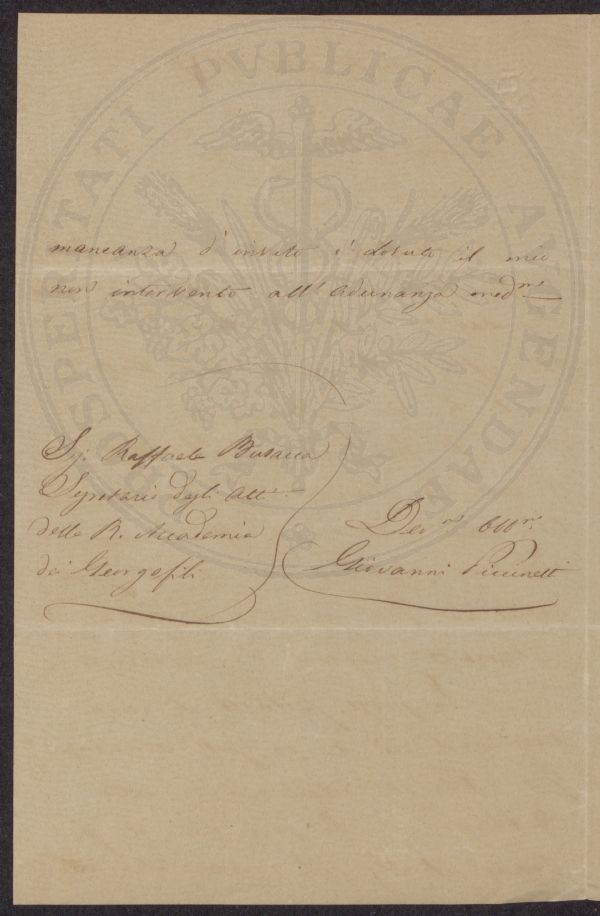 PROSPERITATI PVBLICAE AVGENDAE
mancanza d'invito è dovuto il mio
non intervento all'adunanza med.ma
Sig. Raffaele Busacca
Segretario degli Atti
della R. Accademia
dei Georgofili
Dev.mo Obb.mo
Giovanni Piccinetti